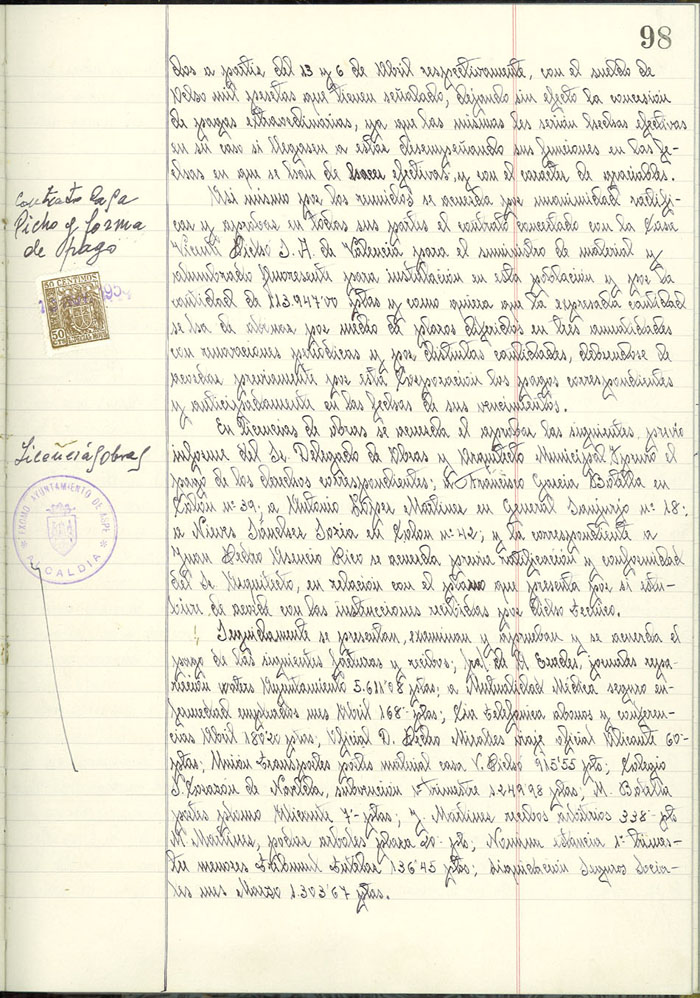 98
dos a partir del 13 y 6 de Abril respectivamente, con el sueldo de
ocho mil pesetas que tienen señalado, dejando sin efecto la concesion
de pagas extraordinarias, ya que las mismas les serian hechas efectivas
en su caso si llegasen a estar desempeñando sus funciones en las fe-
chas en que se han de hacer efectivas, y con el caracter de apreciables.
Contrato Casa
Picho y forma
de pago
Asi mismo por los reunidos se acuerda por unanimidad ratifi-
car y aprobar en todas sus partes el contrato concertado con la Casa
Vicente Pichó S. A. de Valencia para el suministro de material y
alumbrado fluoresente para instalación en esta población y por la
cantidad de 113.947'00 ptas y como quiera que la expresada cantidad
se ha de abonar por medio de plazos dirigidos en tres anualidades
con renovaciones periodicas y por distintas cantidades, debiendose de
acordar previamente por esta Corporación los pagos correspondientes
y anticipadamente en las fechas de sus vencimientos.
50 CENTIMOS
50
Licencias Obras
EXCMO. AYUNTAMIENTO DE ASPE
ALCALDIA
En licencias de obras se acuerda el aprobar las siguientes, previo
informe del Sr. Delegado de Obras y Arquitecto Municipal y previo el
pago de los derechos correspondientes; a Francisco Garcia Botella en
Colon nº 39; a Antonio López Martinez en General Sanjurjo nº 18;
a Nieves Sánchez Soria en Colon nº 42; y la correspondiente a
Juan Pedro Asencio Rico se acuerda previa ratificación y conformidad
del Sr. Arquitecto, en relación con el plano que presenta por si estu-
viere de acord con las instrucciones recibidas por dicho tecnico.
Seguidamente se presentan, examinan y aprueban y se acuerda el
pago de las siguientes facturas y recibos; jornales repa-
ración water Ayuntamiento 5.611'08 ptas; a Mutualidad Medica seguro en-
fermedad empleados mes Abril 168 ptas; Cia telefonica abonos y conferen-
cias Abril 180'20 ptas; Oficial D. Pedro Miralles viaje oficial Alicante 60-
ptas; Union transportes portes material casa V. Pichó 915'55 pts; Colegio
S. Corazón de Novelda, subvención 1º trimestre 1.249'98 ptas; M. Botella
portes plomo Alicante 7'- ptas; J. Martinez recibos arbitrios 338 pts
Mº Martinez, podar arboles plaza 20 pts; Nomina estancia 1º trimes-
tre menores tribunal tutelar 136'45 ptas; liquidación Seguros Socia-
les mes Marzo 1.303'67 ptas.